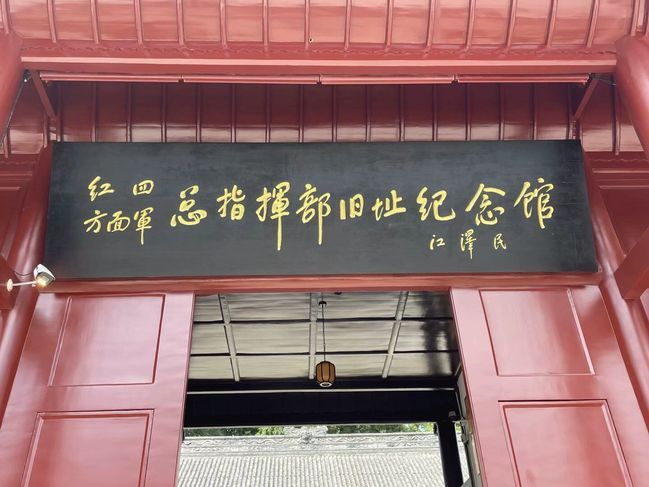 红四
方面軍
总指揮部旧址纪念馆
江澤民